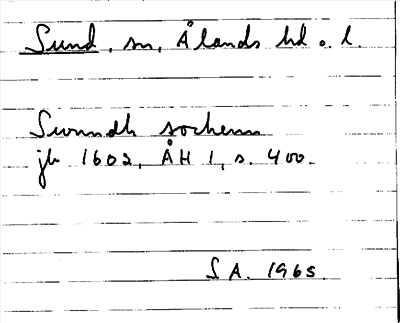 Sund, sn, Ålands hd o. l.
Swnndh sochenn
jb 1602, ÅH 1, s. 400.
S A. 1965.